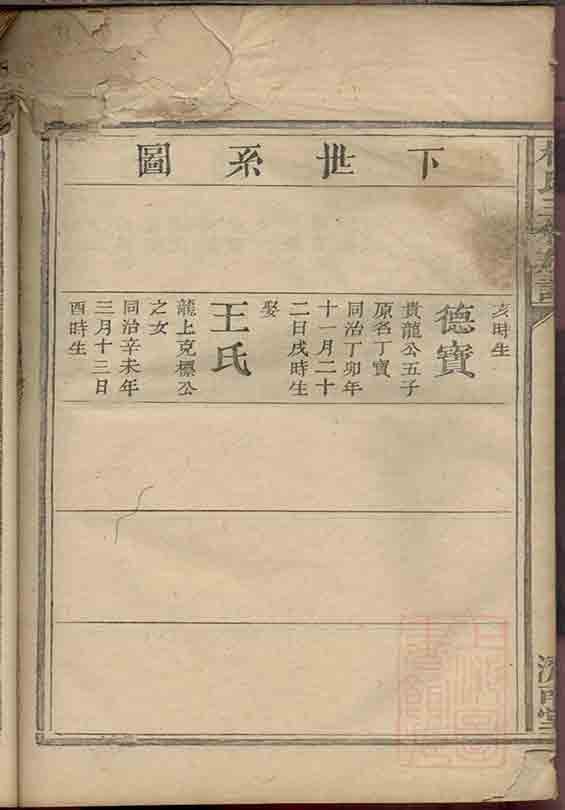 下世系圖
亥時生
德寶
貴龍公五子
原名丁寶
同治丁卯年
十一月二十
二日戌時生
娶
王氏
龍上克標公
之女
同治辛未年
三月十三日
酉時生